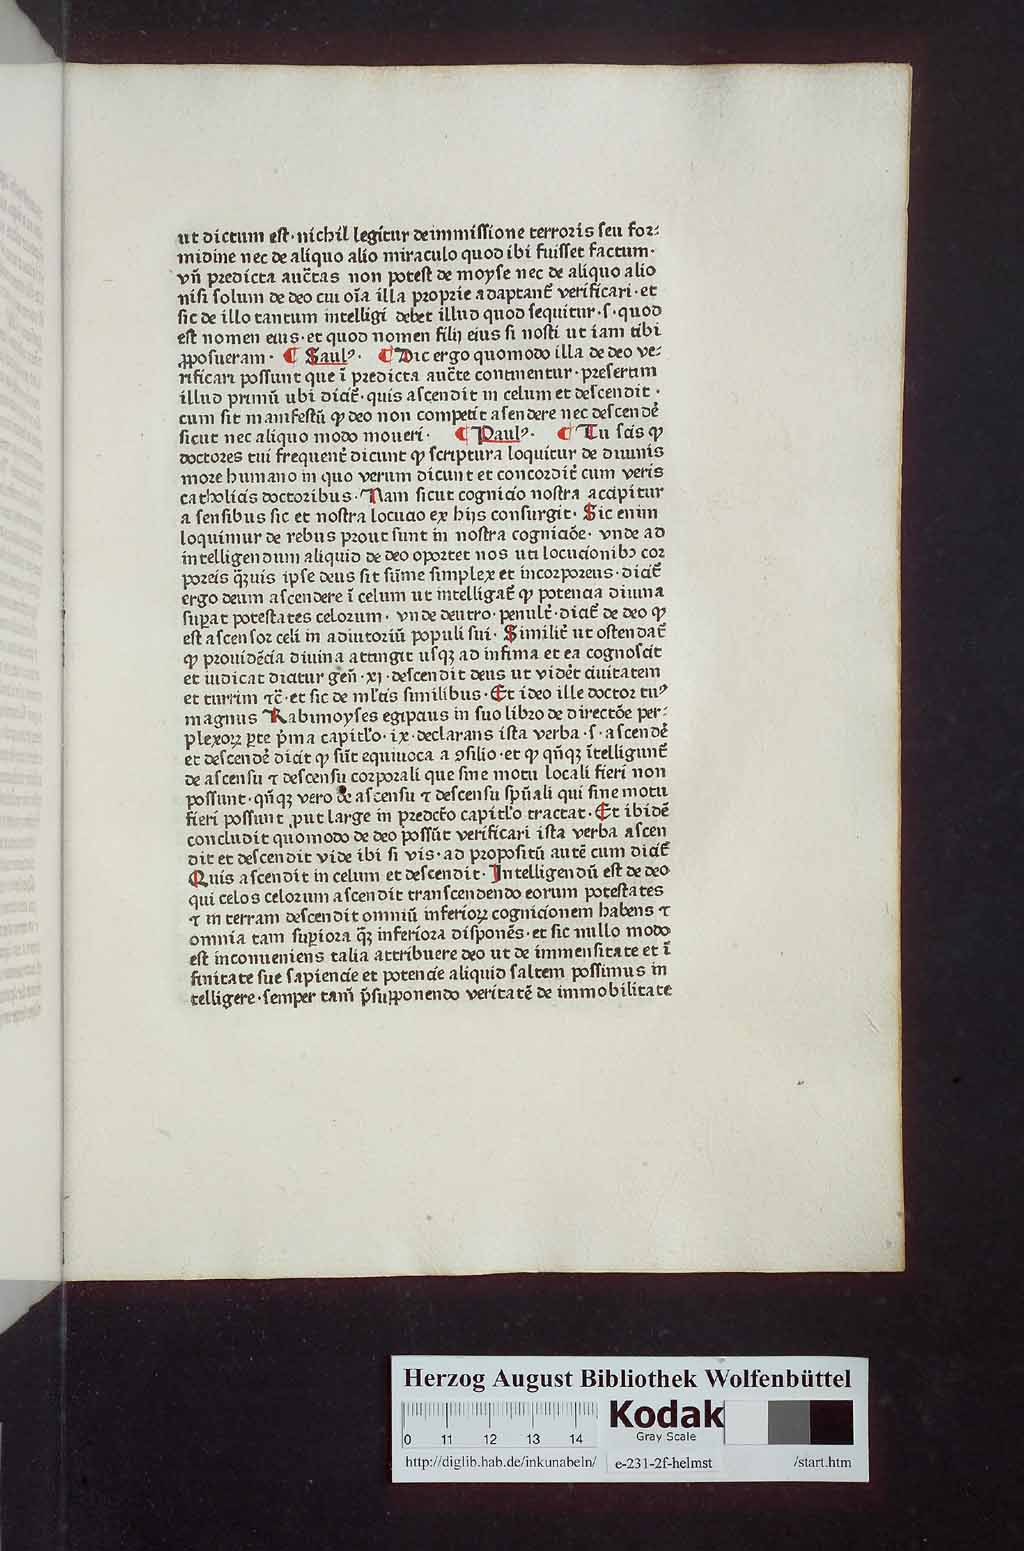 ut dictum est· nichil legitur deimmissione terroris seu for⸗
midine nec de aliquo alio miraculo quod ibi fuisset factum·
vñ predicta auct̃as non potest de moyse nec de aliquo alio
nisi solum de deo cui oĩa illa proprie adaptant̃ verificari· et
sic de illo tantum intelligi debet illud quod sequitur· s· quod
est nomen eius· et quod nomen filij eius si nosti ut iam tibi
ꝓposueram· ¶ Saulꝰ· ¶ Dic ergo quomodo illa de deo ve⸗
rificari possunt que ĩ predicta auct̃te continentur· presertim
illud primũ ubi dicit̃· quis ascendit in celum et descendit·
cum sit manifestũ ꝙ deo non competit asendere nec descendẽ
sicut nec aliquo modo moueri· ¶ Paulꝰ· ¶ Tu scis ꝙ
doctores tui frequent̃ dicunt ꝙ scriptura loquitur de diuinis
more humano in quo verum dicunt et concordit̃ cum veris
catholicis doctoribus· Nam sicut cognicio nostra accipitur
a sensibus sic et nostra locucio ex hijs consurgit· Sic enim
loquimur de rebus prout sunt in nostra cognicõe· vnde ad
intelligendum aliquid de deo oportet nos uti locucionibꝫ cor
poreis q̃ꝫuis ipse deus sit sũme simplex et incorporeus· dicit̃
ergo deum ascendere ĩ celum ut intelligat̃ ꝙ potencia diuina
suꝑat potestates celorum· vnde deutro· penult̃· dicit̃ de deo ꝙ
est ascensor celi in adiutoriũ populi sui· Similit̃ ut ostendat̃
ꝙ prouidẽcia diuina attingit usqꝫ ad infima et ea cognoscit
et iudicat dicitur geñ· xj· descendit deus ut videt̃ ciuitatem
et turrim ⁊c̃· et sic de ml̃tis similibus· Et ideo ille doctor tuꝰ
magnus Rabimoyses egipcius in suo libro de directõe per⸗
plexoꝝ ꝑte p̃ma capitl̃o· ix· declarans ista verba· s· ascendẽ
et descendẽ dicit ꝙ sũt equiuoca a ꝯsilio· et ꝙ qñqꝫ ĩtelligunt̃
de ascensu ⁊ descensu corporali que sine motu locali fieri non
possunt· qñqꝫ vero de ascensu ⁊ descensu sp̃uali qui sine motu
fieri possunt ꝓut large in predct̃o capitl̃o tractat· Et ibidẽ
concludit quomodo de deo possũt verificari ista verba ascen
dit et descendit vide ibi si vis· ad propositũ autẽ cum dicit̃
Quis ascendit in celum et descendit· Intelligendũ est de deo
qui celos celorum ascendit transcendendo eorum potestates
⁊ in terram descendit omniũ inferioꝝ cognicionem habens ⁊
omnia tam suꝑiora q̃ꝫ inferiora disponẽs· et sic nullo modo
est inconueniens talia attribuere deo ut de immensitate et ĩ
finitate sue sapiencie et potencie aliquid saltem possimus in
telligere· semper tam̃ p̃suꝑponendo veritatẽ de immobilitate
Herzog August Bibliothek Wolfenbüttel
0 11 12 13 14
Kodak
Gray Scale
http://diglib.hab.de/inkunabeln/ e-231-2f-helmst /start.htm